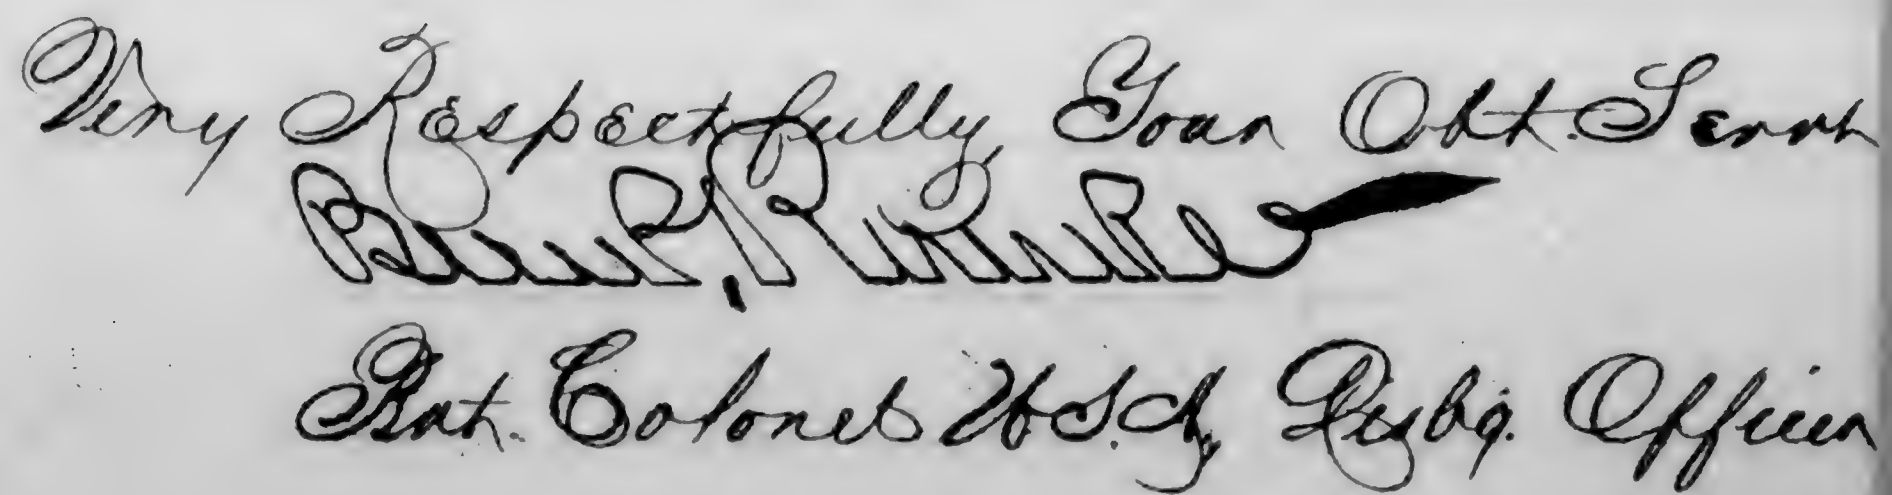 Very Respectfully Your Obt. Servt
Ben P. Runkle
Bvt. Colonel U.S.A, Disbg. Officer